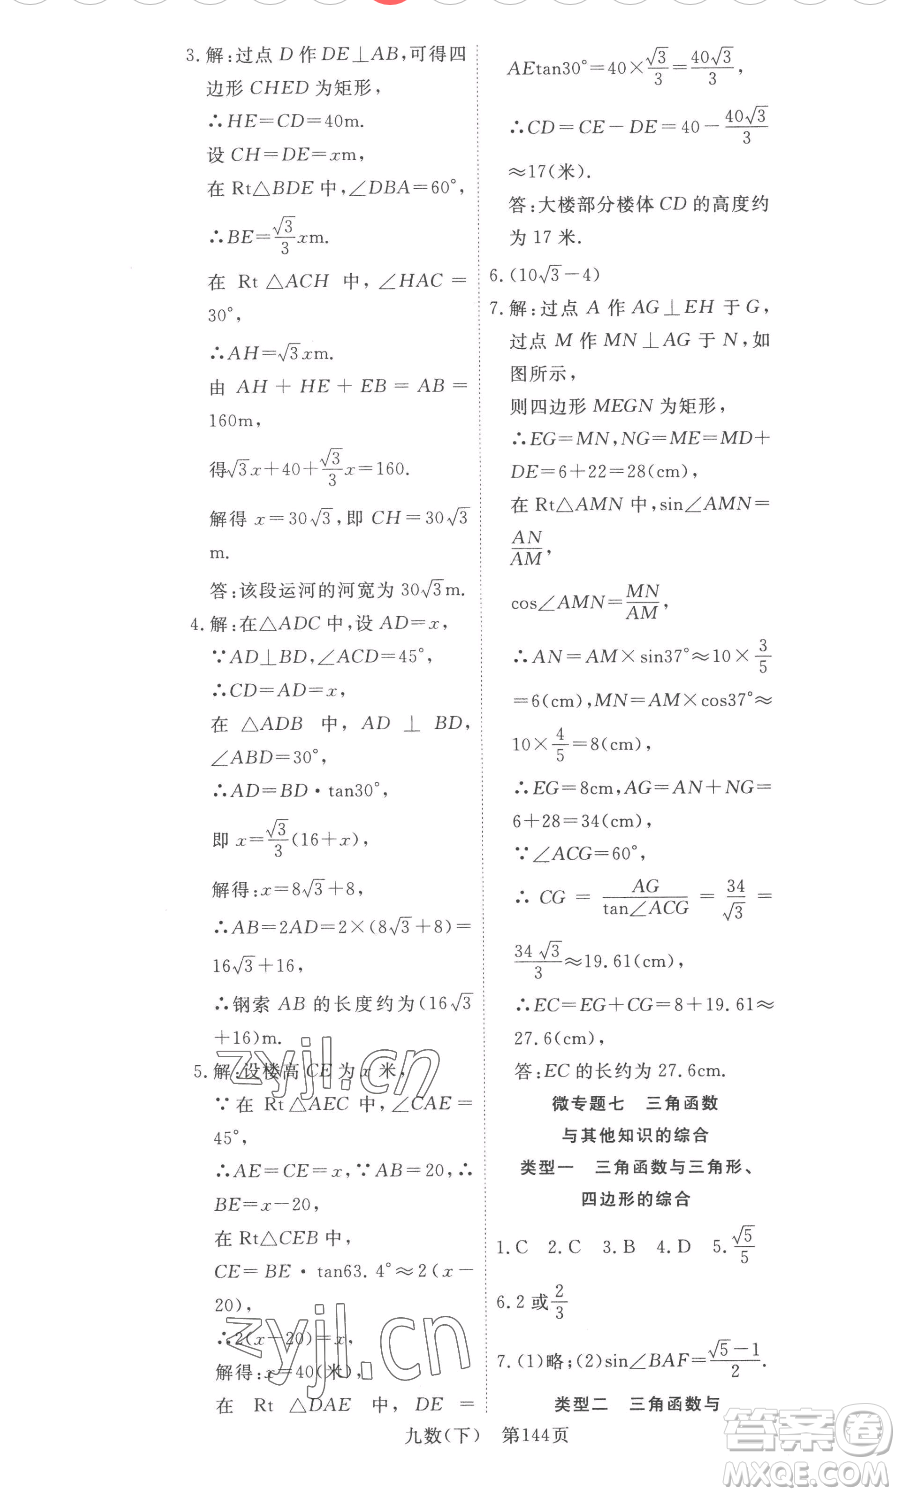 3. 解:过点 D 作 DE⊥AB,可得四
边形 CHED 为矩形,
∴HE=CD=40m.
设 CH=DE=xm,
在 Rt△BDE 中,∠DBA=60°,
∴BE=√3/3 xm.
在 Rt △ACH 中, ∠HAC=
30°,
∴AH=√3xm.
由 AH + HE + EB = AB =
160m,
得√3x+40+√3/3 x=160.
解得 x=30√3,即 CH=30√3
m.
答:该段运河的河宽为 30√3m.
4. 解:在△ADC 中,设 AD=x,
∵AD⊥BD,∠ACD=45°,
∴CD=AD=x,
在 △ADB 中, AD ⊥ BD,
∠ABD=30°,
∴AD=BD·tan30°,
即 x=√3/3(16+x),
解得:x=8√3+8,
∴AB=2AD=2×(8√3+8)=
16√3+16,
∴钢索 AB 的长度约为(16√3
+16)m.
5. 解:设楼高 CE 为 x 米,
∵在 Rt△AEC 中,∠CAE=
45°,
∴AE=CE=x,∵AB=20,∴
BE=x-20,
在 Rt△CEB 中,
CE=BE·tan63.4°≈2(x-
20),
∴2(x-20)=x,
解得:x=40(米),
在 Rt △DAE 中, DE =
AEtan30°=40×√3/3=40√3/3,
∴CD=CE-DE=40-40√3/3
≈17(米).
答:大楼部分楼体 CD 的高度约
为 17 米.
6. (10√3-4)
7. 解:过点 A 作 AG⊥EH 于 G,
过点 M 作 MN⊥AG 于 N,如
图所示,
则四边形 MEGN 为矩形,
∴EG=MN,NG=ME=MD+
DE=6+22=28(cm),
在 Rt△AMN 中,sin∠AMN=
AN/AM,
cos∠AMN=MN/AM,
∴AN=AM×sin37°≈10×3/5
=6(cm),MN=AM×cos37°≈
10×4/5=8(cm),
∴EG=8cm,AG=AN+NG=
6+28=34(cm),
∵∠ACG=60°,
∴ CG = AG/tan∠ACG = 34/√3 =
34√3/3≈19.61(cm),
∴EC=EG+CG=8+19.61≈
27.6(cm),
答:EC 的长约为 27.6cm.
微专题七 三角函数
与其他知识的综合
类型一 三角函数与三角形、
四边形的综合
1. C 2. C 3. B 4. D 5. √5/5
6. 2 或 2/3
7. (1)略;(2)sin∠BAF=(√5-1)/2.
类型二 三角函数与
九数(下) 第144页
zyjl.cn
zyjl.cn
答案圈
MXQE.COM